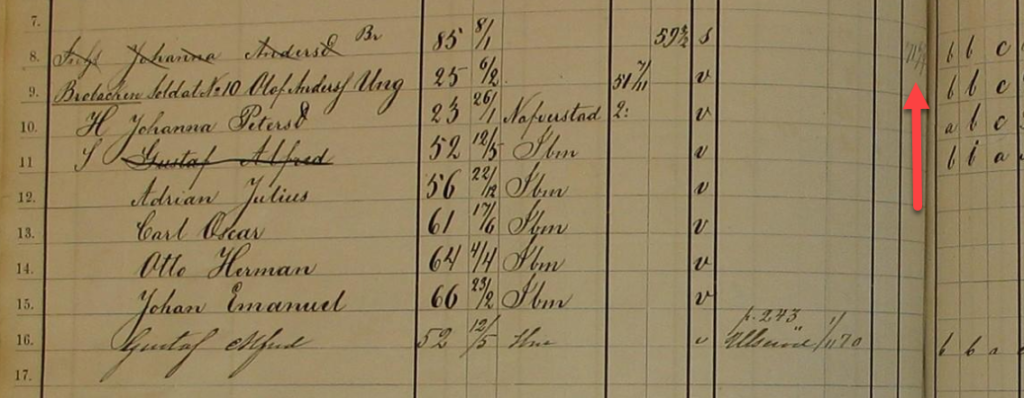 7.
8. Johanna Andersd Br 85 8/1 59 3/2 s b b c
9. Brobacken Soldat No 10 Olof Andersf Ung 25 6/2 51 7/11 v b b c
10. H Johanna Petersd 23 26/1 Nafverstad 2: v a b c
11 S Gustaf Alfred 52 12/5 Ibm v b i a
12. Adrian Julius 56 22/12 Ibm v
13. Carl Oscar 61 17/6 Ibm v
14. Otto Herman 64 4/4 Ibm v
15. Johan Emanuel 66 23/2 Ibm v
p. 243
16. Gustaf Alfred 52 12/5 v 70 b b a
17.